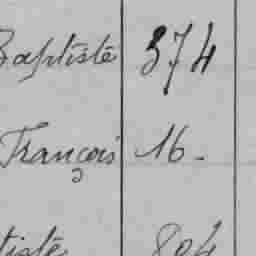 Baptiste 374
François 16-
tiste 804